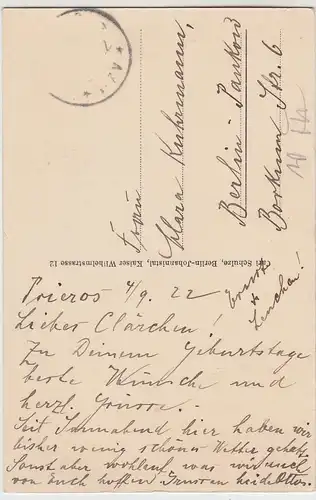 Frau
Klara Kuhrmann,
Berlin-Pankow
Borkum Str. 6
Carl Schulze, Berlin-Johannistal, Kaiser Wilhelmstrasse 12
Prieros 4/9. 22
Liebes Clärchen!
Zu Deinem Geburtstage
beste Wünsche und
herzl. Grüsse.
Seit Sonnabend hier haben wir
bisher wenig schönes Wetter gehabt,
Sonst aber wohlauf, was wir auch
von Euch hoffen
Lenchen!